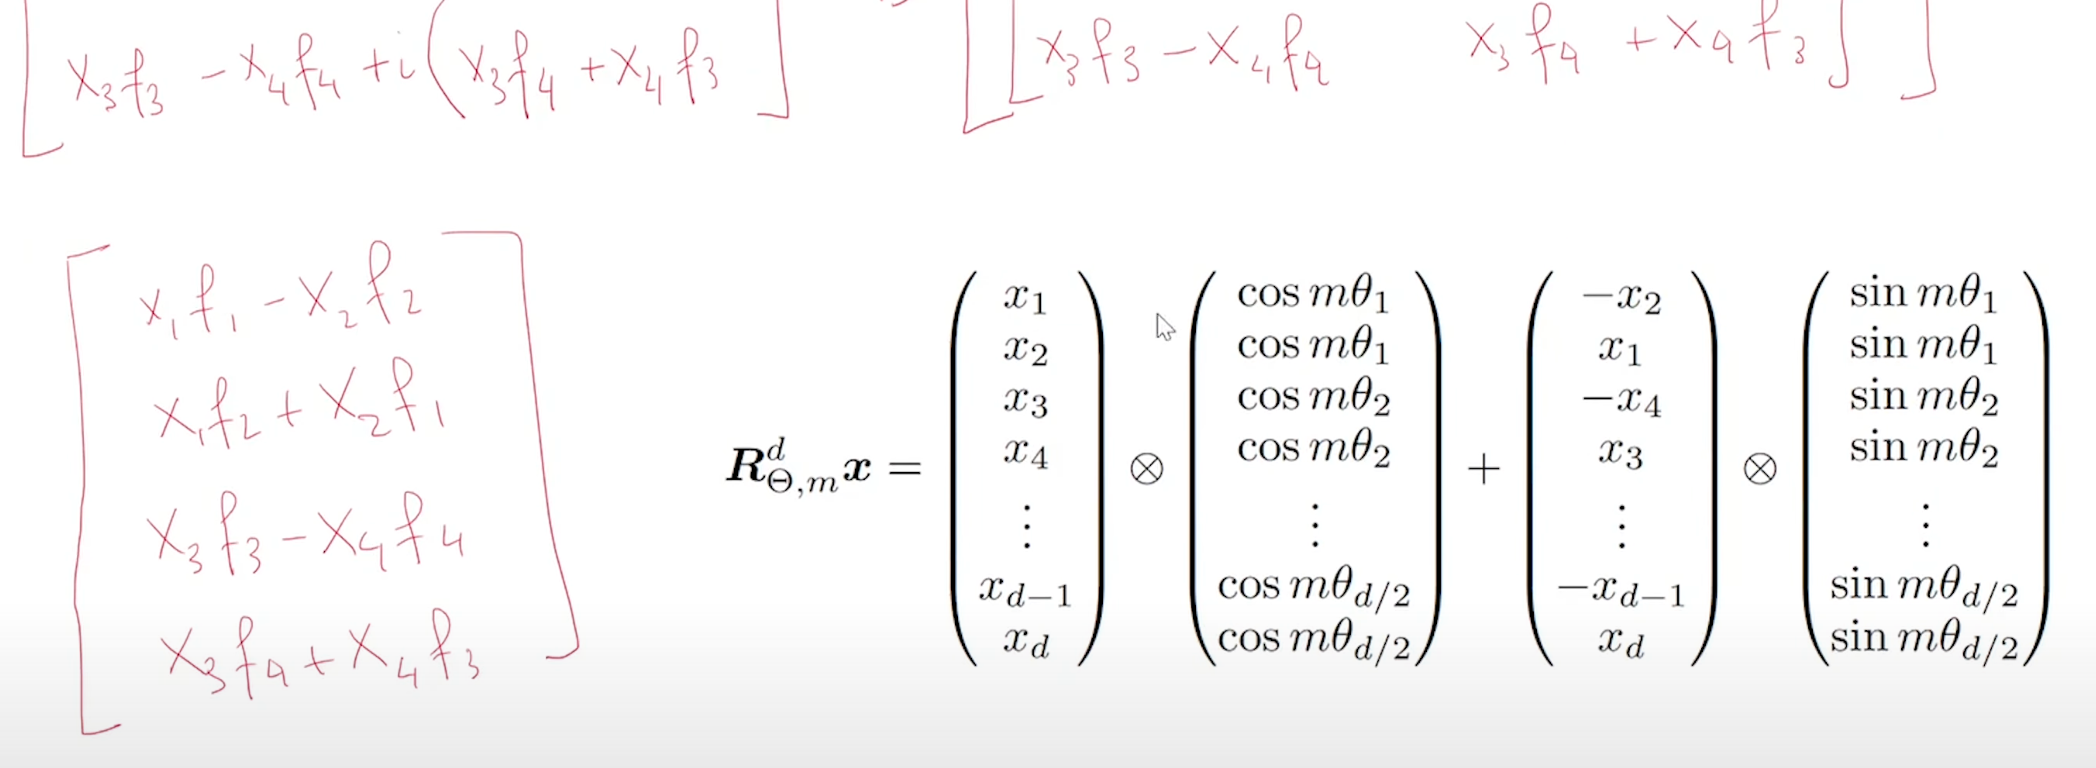 x₃f₃ − x₄f₄ + i(x₃f₄ + x₄f₃ ] [[x₃f₃ − x₄f₄ x₃f₄ + x₄f₃]]
x₁f₁ − x₂f₂
x₁f₂ + x₂f₁
x₃f₃ − x₄f₄
x₃f₄ + x₄f₃
R^d_{Θ,m} x = (x₁ x₂ x₃ x₄ ⋮ x_{d−1} x_d) ⊗ (cos mθ₁ cos mθ₁ cos mθ₂ cos mθ₂ ⋮ cos mθ_{d/2} cos mθ_{d/2}) + (−x₂ x₁ −x₄ x₃ ⋮ −x_{d−1} x_d) ⊗ (sin mθ₁ sin mθ₁ sin mθ₂ sin mθ₂ ⋮ sin mθ_{d/2} sin mθ_{d/2})